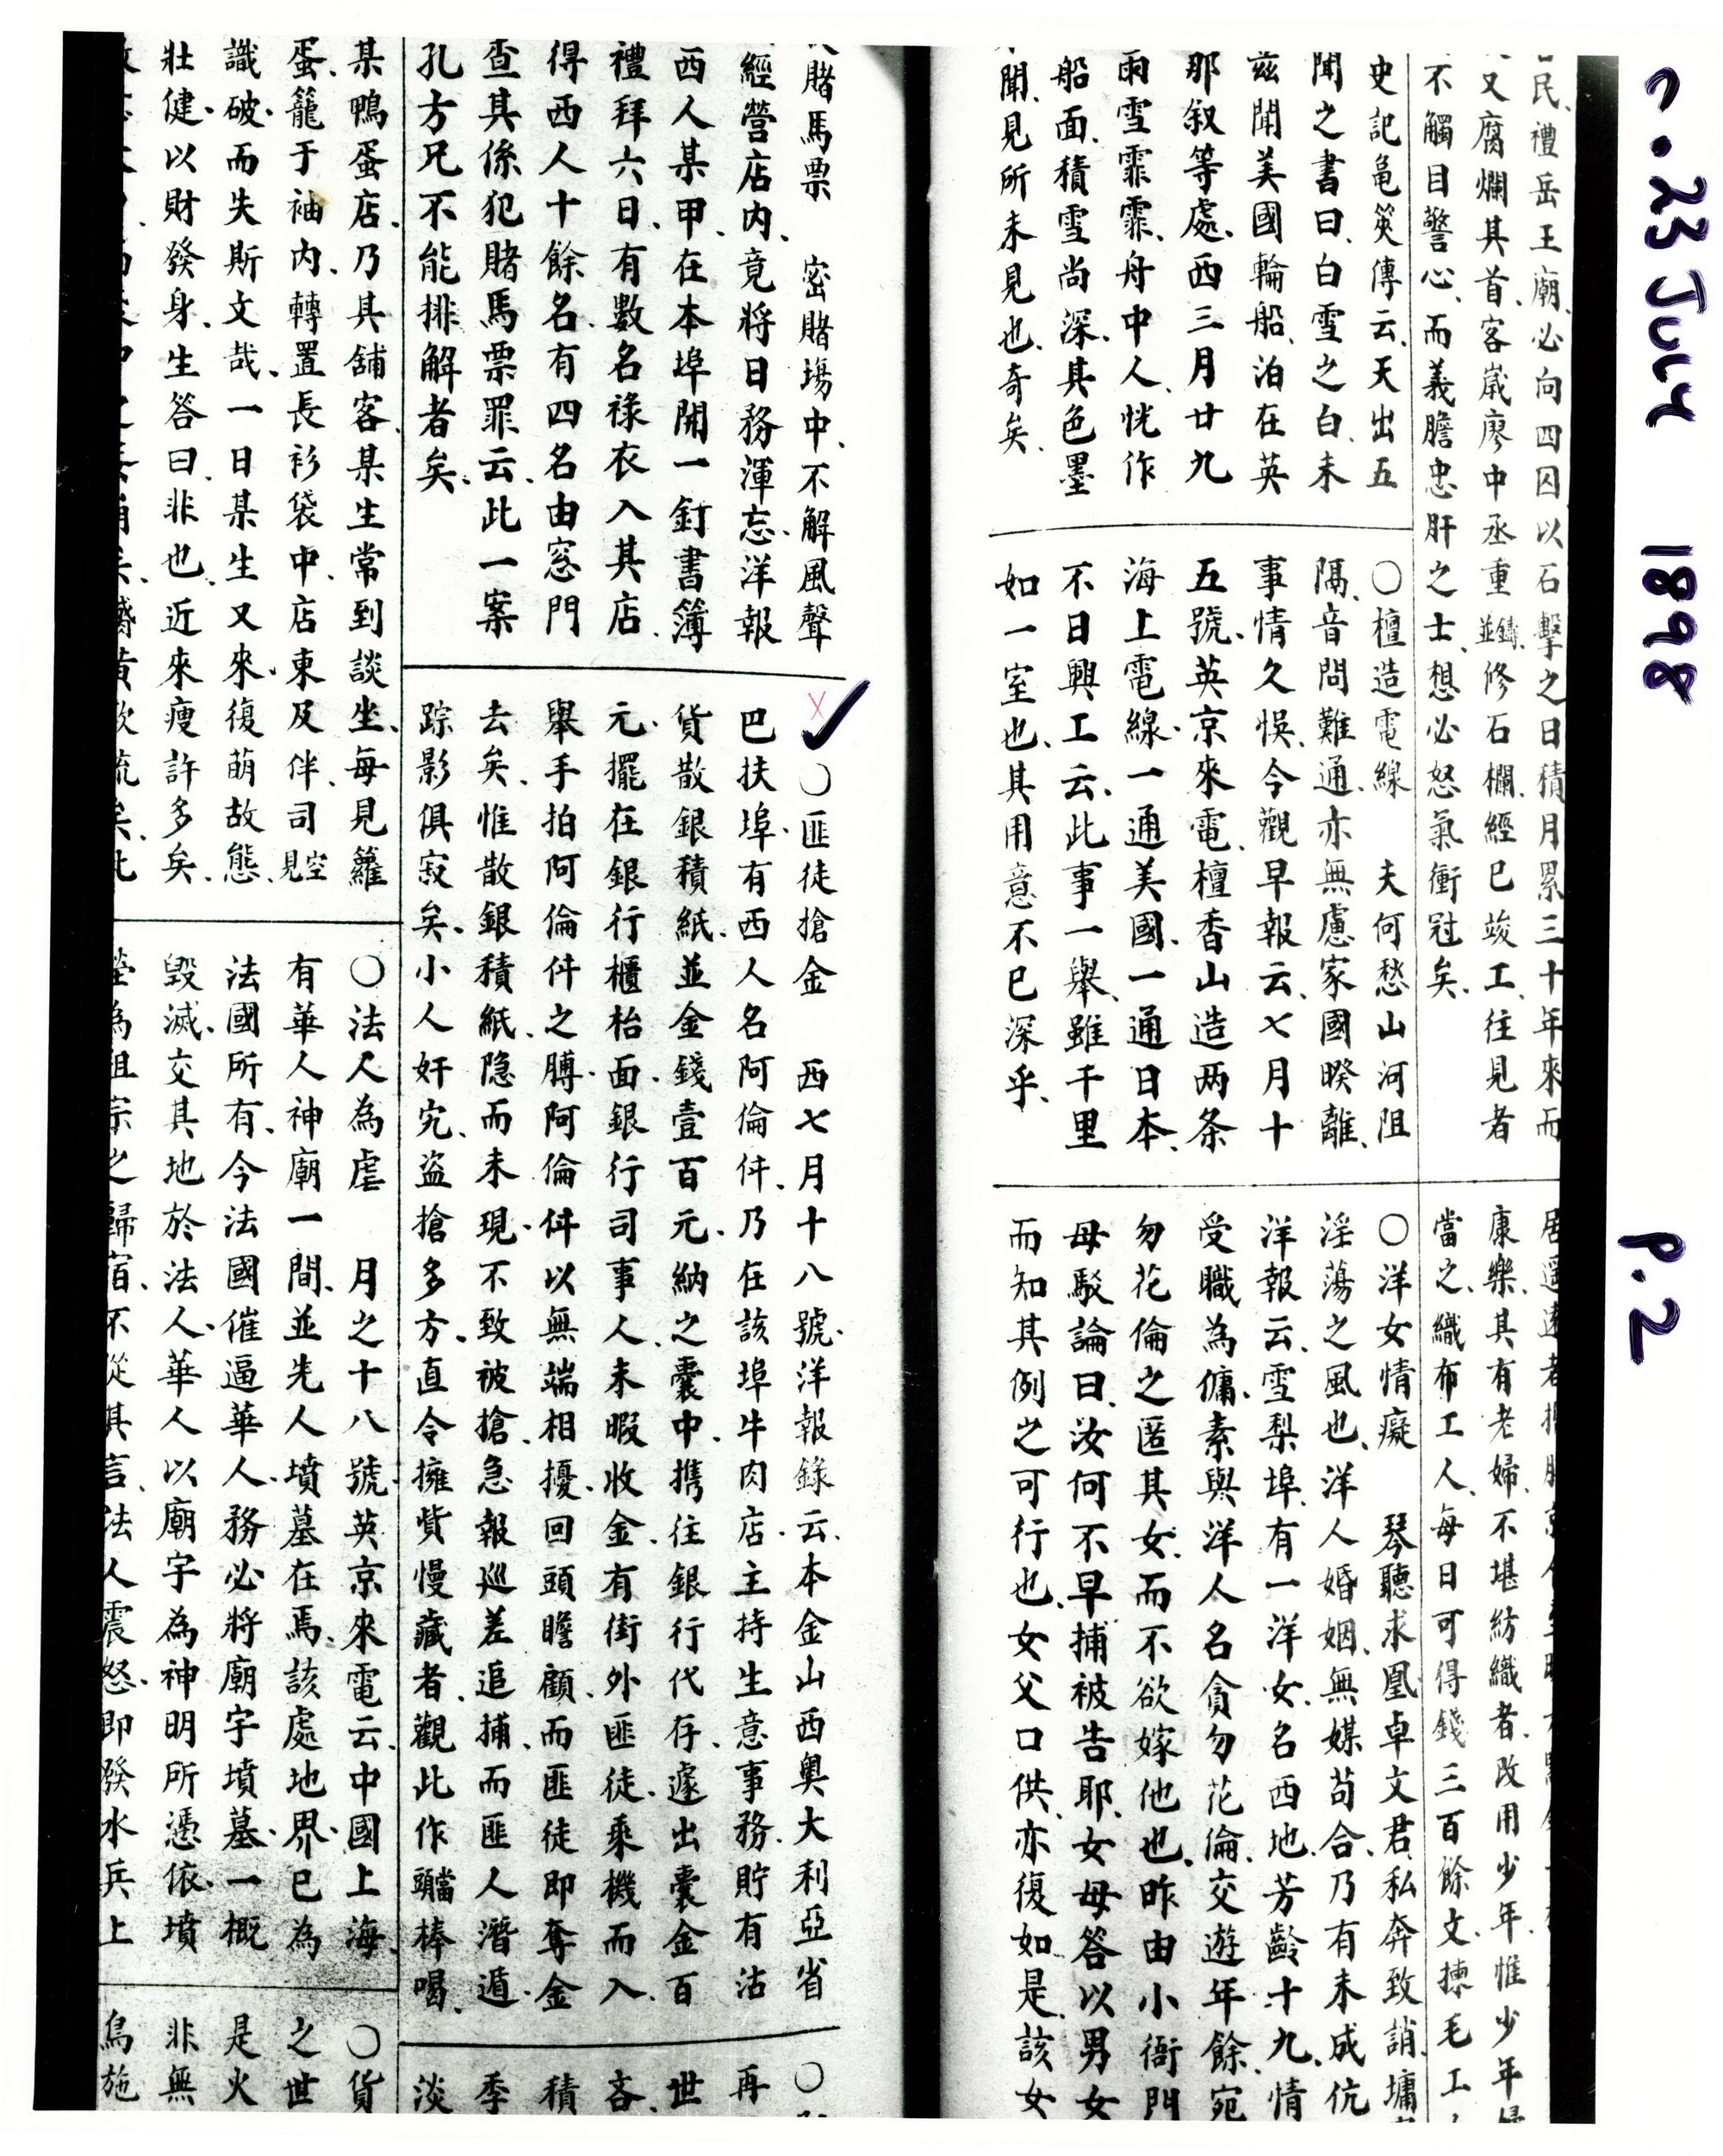 C. 23 July 1898
P. 2
民、禮岳王廟、必向四囚以石擊之日積月累三十年來而
又腐爛其首、客歲廖中丞重並鑄、修石欄、經已竣工、往見者
不觸目警心、而義膽忠肝之士、想必怒氣衝冠矣、
史記龜筴傳云、天出五
聞之書曰、白雪之白、未
茲聞美國輪船、泊在英
那叙等處、西三月廿九
雨雪霏霏、舟中人、恍作
船面、積雪尚深、其色墨
聞、見所未見也、奇矣、
〇檀造電線 夫何愁山河阻
隔、音問難通、亦無慮家國暌離、
事情久悞、今觀早報云、七月十
五號、英京來電、檀香山造两条
海上電線、一通美國、一通日本、
不日興工云、此事一舉、雖千里
如一室也、其用意不已深乎、
康樂、其有老婦、不堪紡織者、改用少年、惟少年
當之、織布工人、每日可得錢三百餘文、揀毛工
〇洋女情癡 琴聽求凰、卓文君私奔致誚、墉
淫蕩之風也、洋人婚姻、無媒苟合、乃有未成伉
洋報云、雪梨埠、有一洋女、名西地、芳齡十九、情
受職為傭、素與洋人名貪勿花倫、交遊年餘、宛
勿花倫之匿其女、而不欲嫁他也、昨由小衙門
母駁論曰、汝何不早捕被告耶、女母答以男女
而知其例之可行也、女父口供、亦復如是、該女
賭馬票 密賭塲中、不解風聲
經營店内、竟將日務渾忘、洋報
西人某甲、在本埠開一釘書簿
禮拜六日、有數名祿衣入其店、
得西人十餘名、有四名由窓門
查其係犯賭馬票罪云、此一案
孔方兄不能排解者矣、
〇匪徒搶金 西七月十八號、洋報錄云、本金山西奧大利亞省
巴扶埠、有西人名阿倫件、乃在該埠牛肉店、主持生意事務、貯有沽
貨散銀積紙、並金錢壹百元、納之囊中、携往銀行代存、遽出囊金百
元、擺在銀行櫃枱面、銀行司事人、未暇收金、有街外匪徒、乘機而入、
舉手拍阿倫件之膊、阿倫件以無端相擾、回頭瞻顧、而匪徒即奪金
去矣、惟散銀積紙、隐而未現、不致被搶、急報巡差追捕、而匪人潛遁、
踪影俱寂矣、小人奸宄、盜搶多方、直令擁貲慢藏者、觀此作當頭棒喝、
某鴨蛋店、乃具舖客、某生常到談坐、每見籮
蛋、籠于袖内、轉置長衫袋中、店東及伴、司空見
識破、而失斯文哉、一日某生又來、復萌故態、
壯健、以財發身、生答曰、非也、近來瘦許多矣、
〇法人為虐 月之十八號、英京來電云、中國上海、
有華人神廟一間、並先人墳墓在焉、該處地界、已為
法國所有、今法國催逼華人、務必將廟宇墳墓、一概
毀滅、交其地於法人、華人以廟宇為神明所憑依、墳
塋為祖宗之歸宿、不從其言、法人震怒、即發水兵上
〇
再
世
吝、
積
季
淡
〇貨
之世
是火
非無
烏施